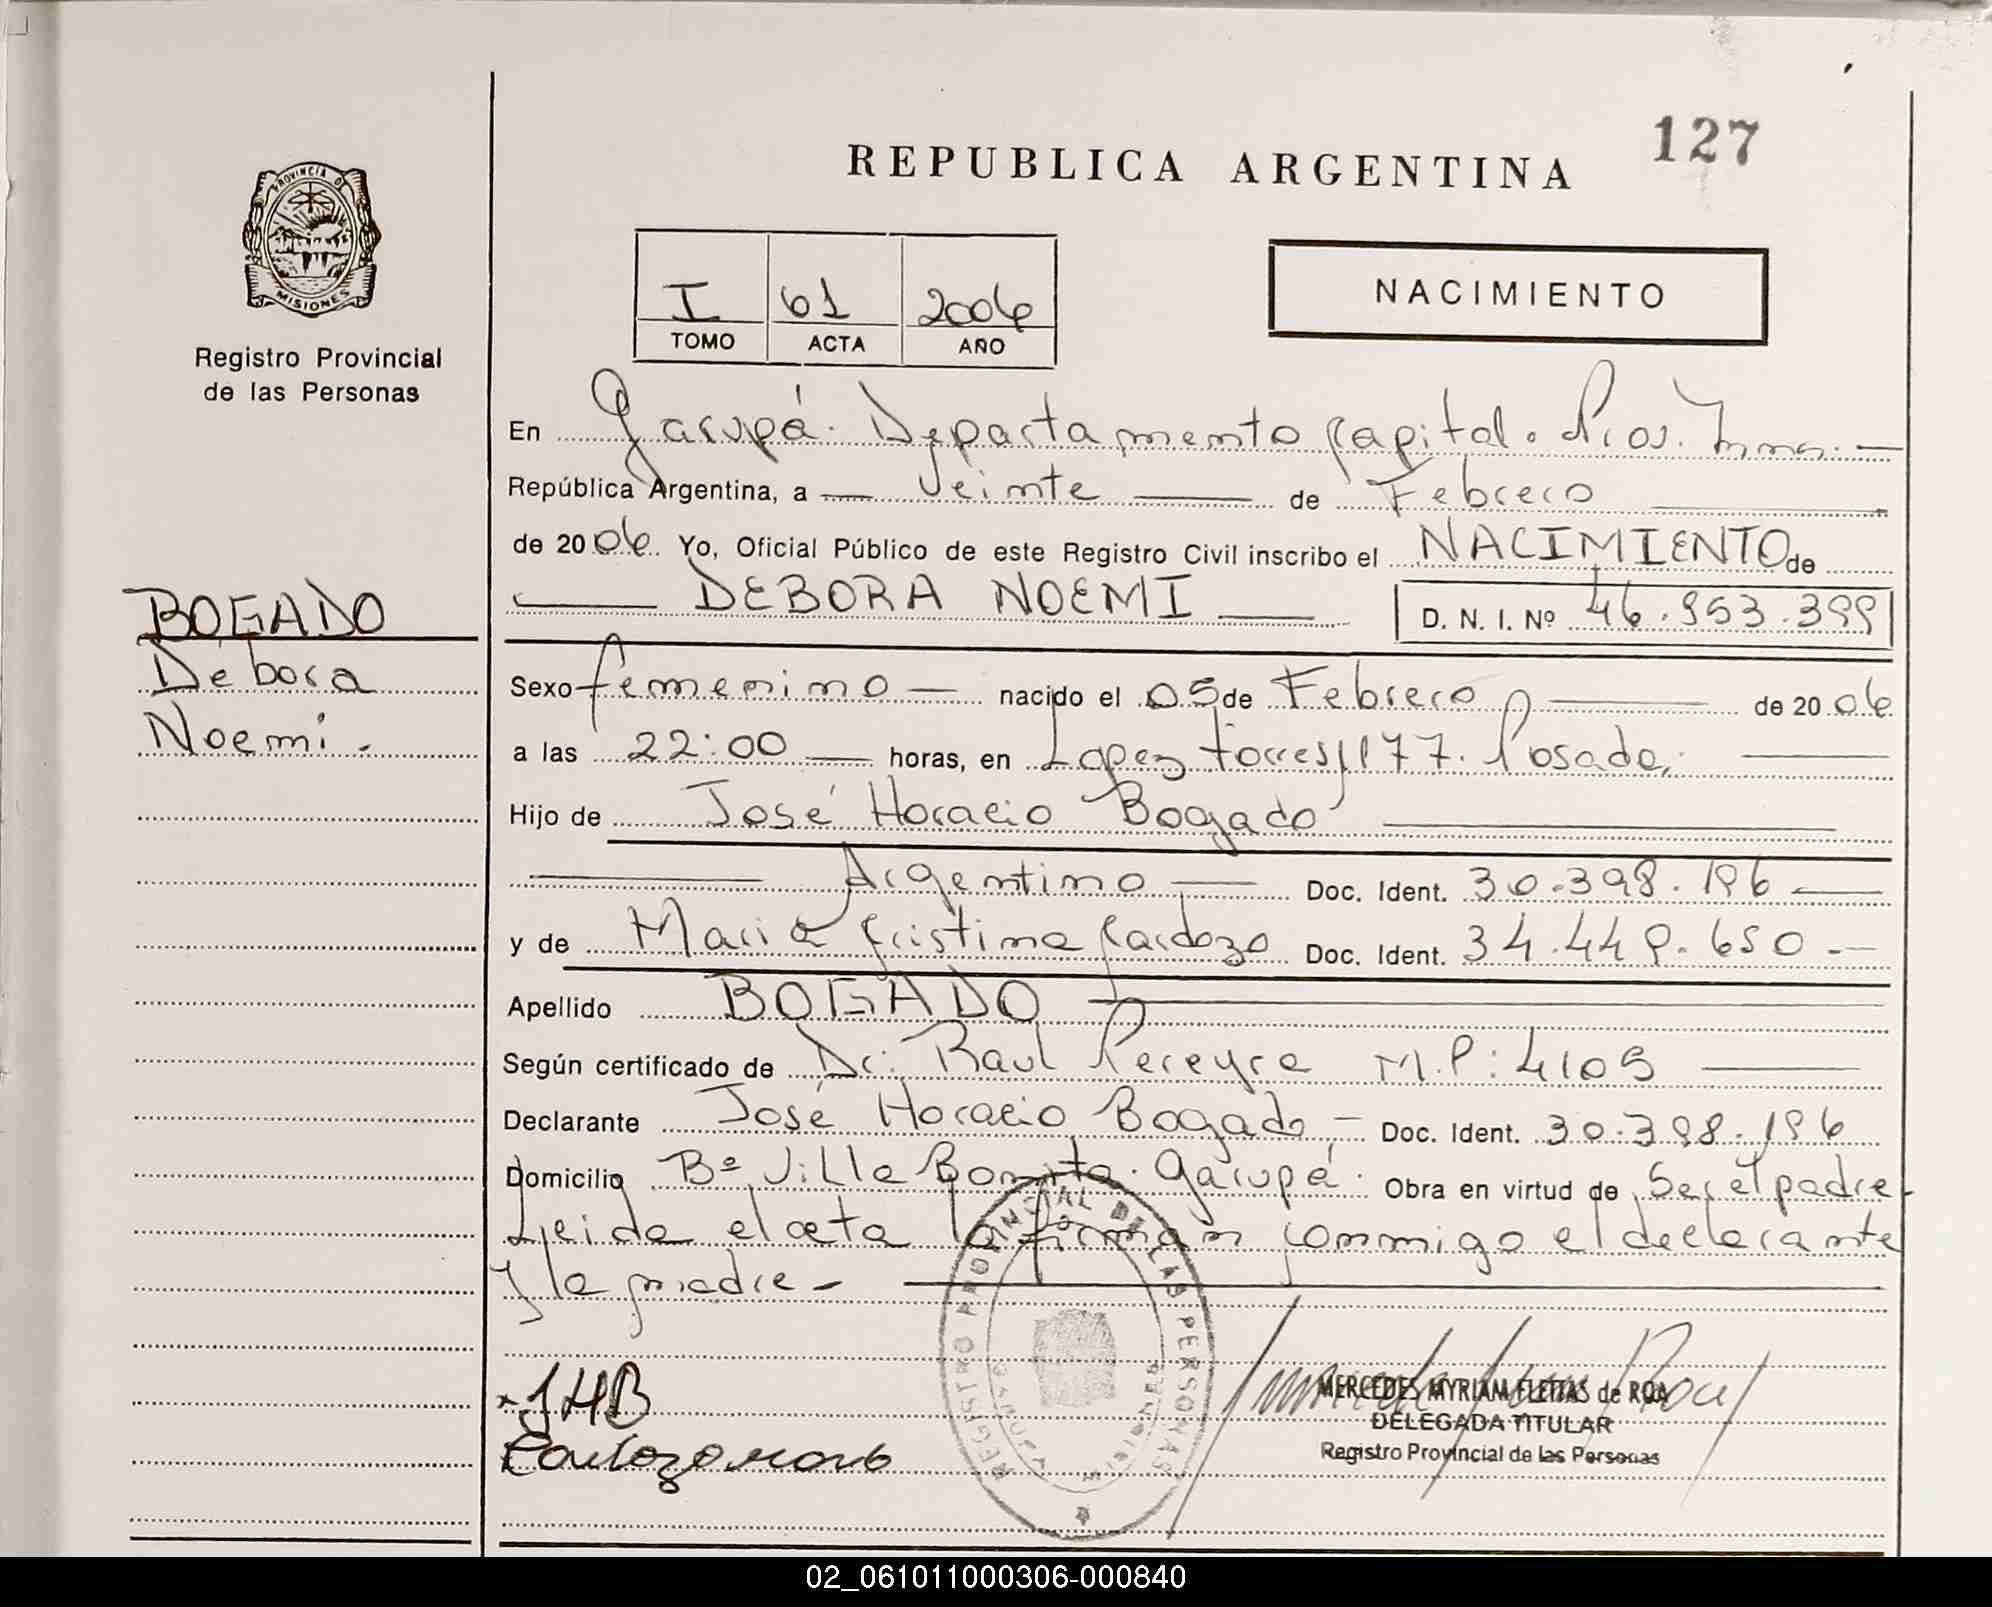 127
REPUBLICA ARGENTINA
PROVINCIA DE
MISIONES
Registro Provincial
de las Personas
I 61 2006
TOMO ACTA AÑO
NACIMIENTO
En Garupá. Departamento Capital.
República Argentina, a Veinte de Febrero
de 2006 Yo, Oficial Público de este Registro Civil inscribo el NACIMIENTO de
DEBORA NOEMI D. N. I. Nº 46.953.399
BOGADO
Debora
Noemi.
Sexo femenino nacido el 05 de Febrero de 2006
a las 22:00 horas, en Lopez Torres 1177. Posadas
Hijo de José Horacio Bogado
Argentino Doc. Ident. 30.398.196
y de Maria Cristina Cardozo Doc. Ident. 34.449.650
Apellido BOGADO
Según certificado de Dr: Raul Pereyra M.P: 4105
Declarante José Horacio Bogado Doc. Ident. 30.398.196
Domicilio Bº Villa Bonita. Garupá. Obra en virtud de Ser el padre
Leida el acta la firman conmigo el declarante
y la madre
REGISTRO PROVINCIAL DE LAS PERSONAS
JHB
MERCEDES MYRIAM FLEITAS de ROA
DELEGADA TITULAR
Registro Provincial de las Personas
02_061011000306-000840